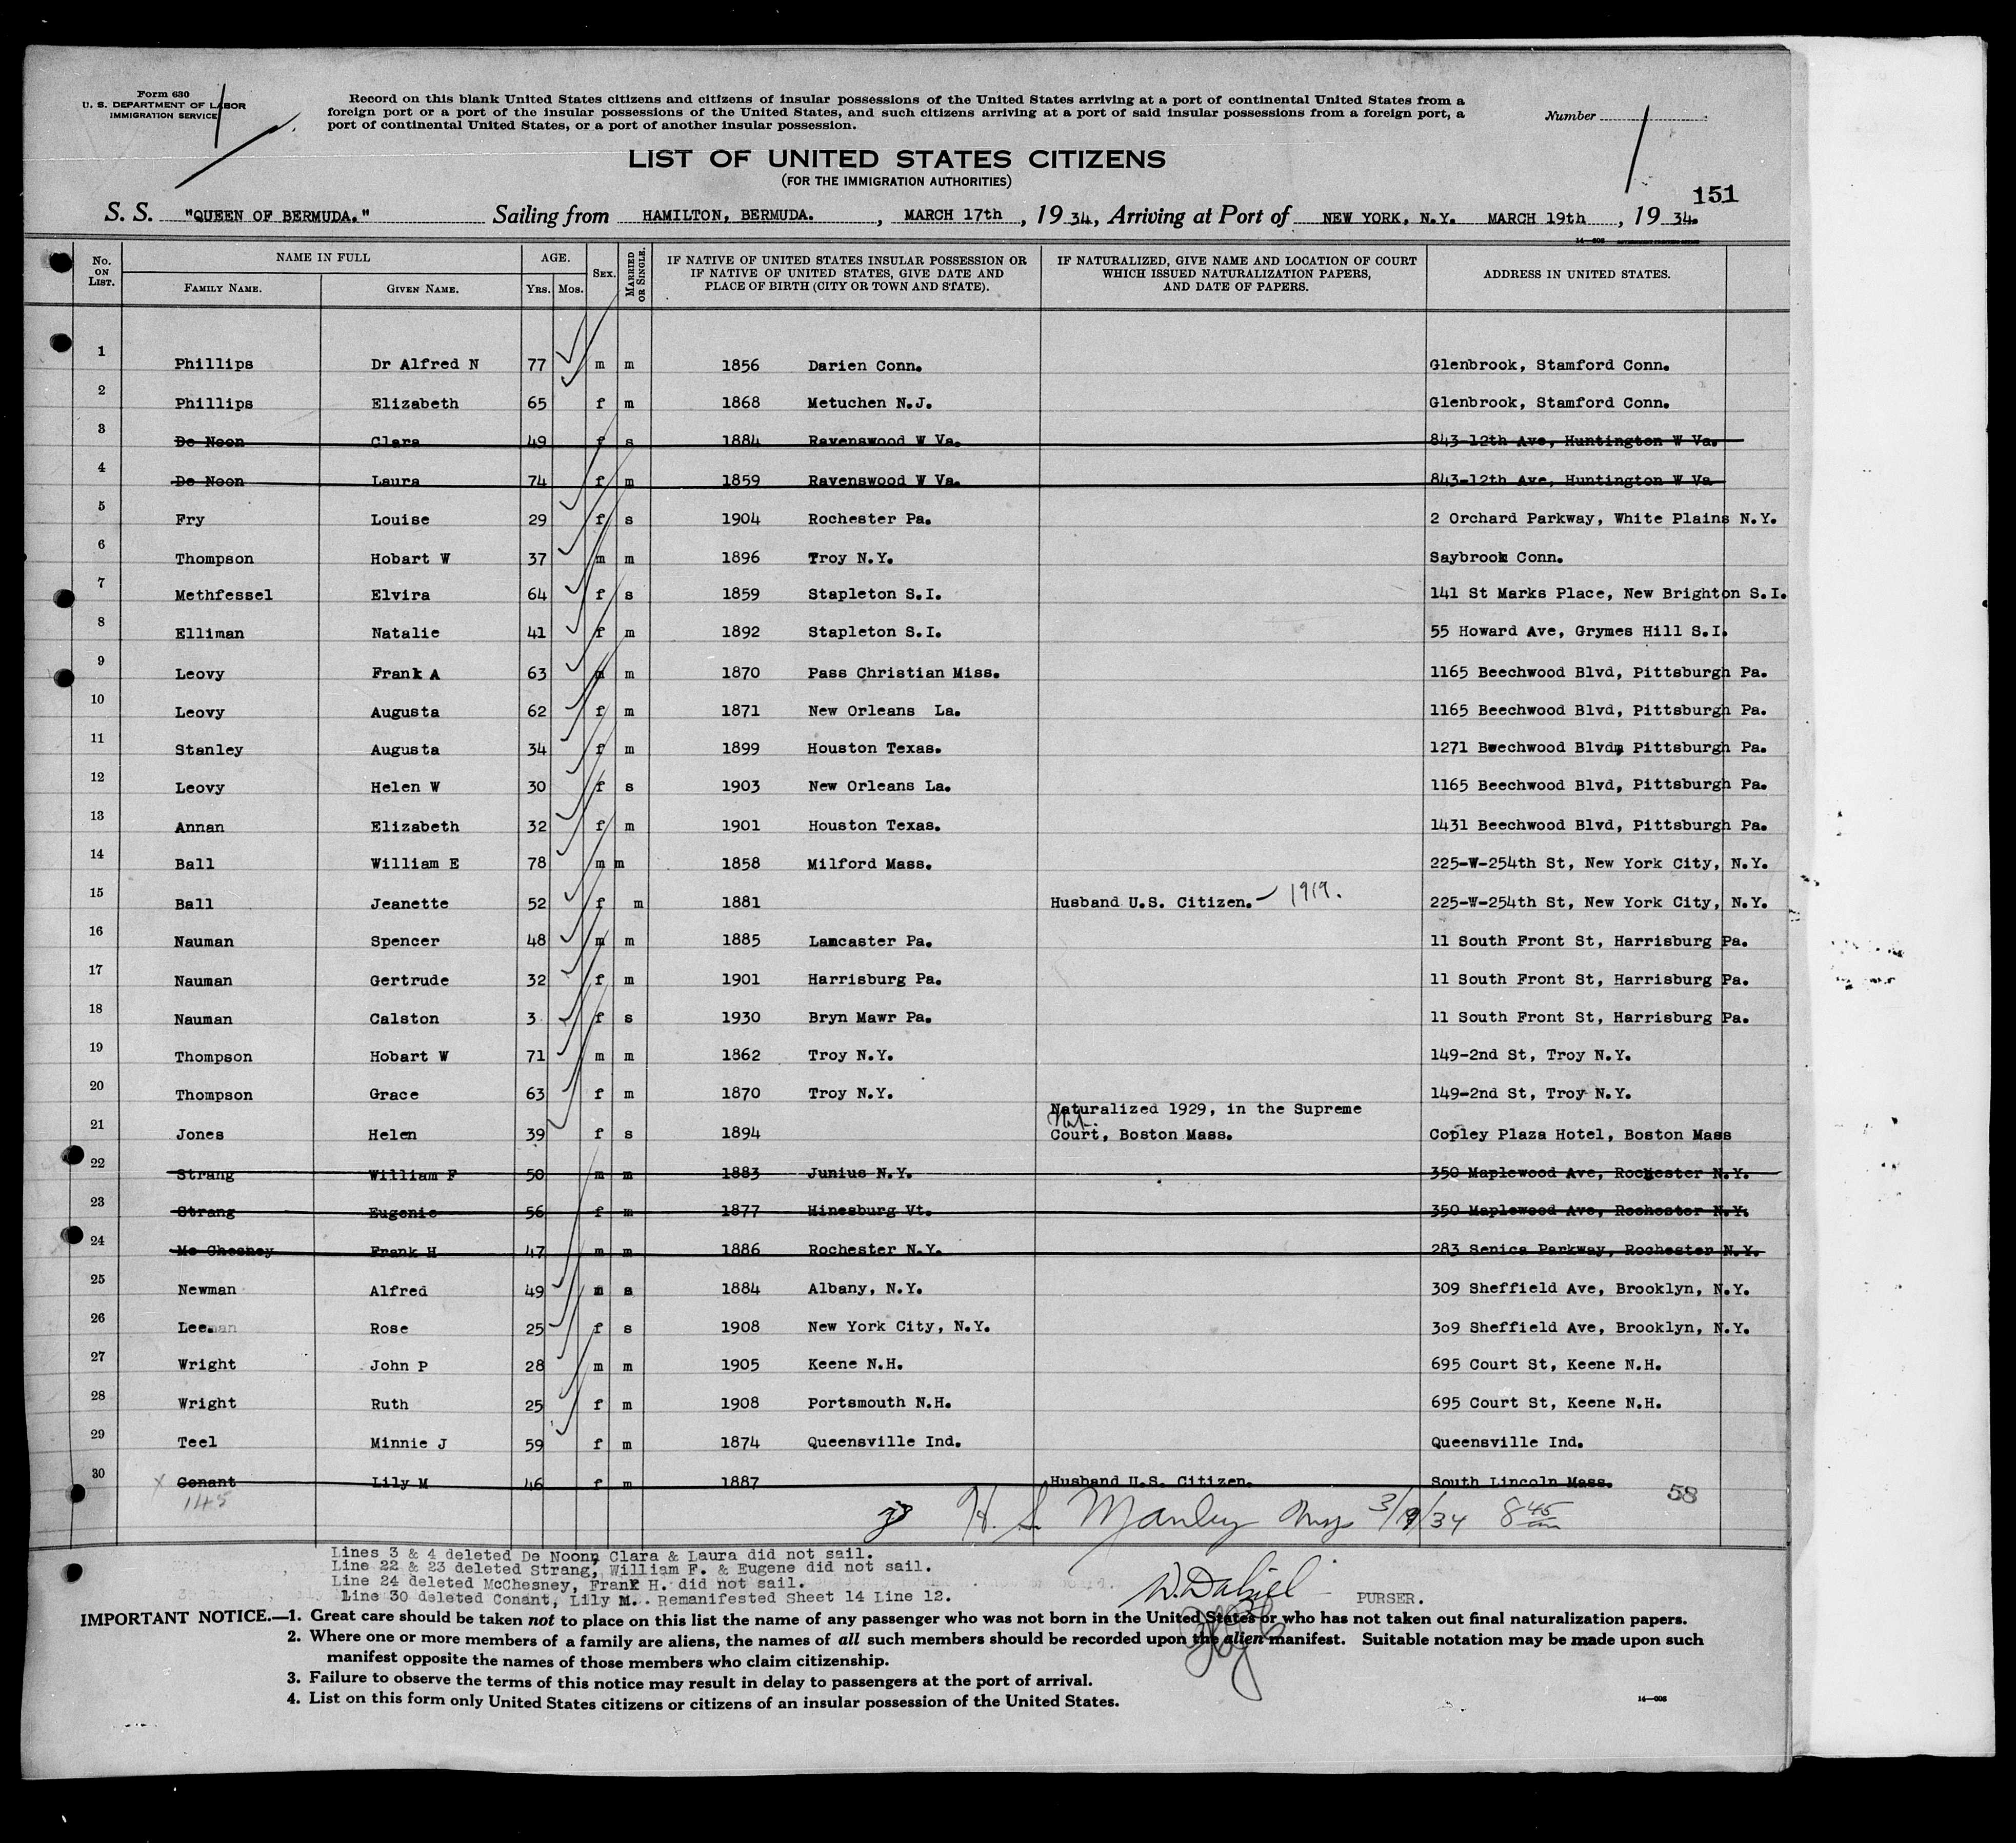 Form 630
U. S. DEPARTMENT OF LABOR
IMMIGRATION SERVICE
Record on this blank United States citizens and citizens of insular possessions of the United States arriving at a port of continental United States from a
foreign port or a port of the insular possessions of the United States, and such citizens arriving at a port of said insular possessions from a foreign port, a
port of continental United States, or a port of another insular possession.
Number
LIST OF UNITED STATES CITIZENS
(FOR THE IMMIGRATION AUTHORITIES)
151
S. S. "QUEEN OF BERMUDA." Sailing from HAMILTON, BERMUDA. , MARCH 17th , 19 34, Arriving at Port of NEW YORK, N.Y. MARCH 19th , 19 34.
No. ON LIST. NAME IN FULL FAMILY NAME. GIVEN NAME. AGE. YRS. MOS. SEX. MARRIED OR SINGLE. IF NATIVE OF UNITED STATES INSULAR POSSESSION OR IF NATIVE OF UNITED STATES, GIVE DATE AND PLACE OF BIRTH (CITY OR TOWN AND STATE). IF NATURALIZED, GIVE NAME AND LOCATION OF COURT WHICH ISSUED NATURALIZATION PAPERS, AND DATE OF PAPERS. ADDRESS IN UNITED STATES.
1 Phillips Dr Alfred N 77 m m 1856 Darien Conn. Glenbrook, Stamford Conn.
2 Phillips Elizabeth 65 f m 1868 Metuchen N.J. Glenbrook, Stamford Conn.
3 De Noon Clara 49 f s 1884 Ravenswood W Va. 843-12th Ave, Huntington W Va.
4 De Noon Laura 74 f m 1859 Ravenswood W Va. 843-12th Ave, Huntington W Va
5 Fry Louise 29 f s 1904 Rochester Pa. 2 Orchard Parkway, White Plains N.Y.
6 Thompson Hobart W 37 m m 1896 Troy N.Y. Saybrook Conn.
7 Methfessel Elvira 64 f s 1859 Stapleton S.I. 141 St Marks Place, New Brighton S.I.
8 Elliman Natalie 41 f m 1892 Stapleton S.I. 55 Howard Ave, Grymes Hill S.I.
9 Leovy Frank A 63 m m 1870 Pass Christian Miss. 1165 Beechwood Blvd, Pittsburgh Pa.
10 Leovy Augusta 62 f m 1871 New Orleans La. 1165 Beechwood Blvd, Pittsburgh Pa.
11 Stanley Augusta 34 f m 1899 Houston Texas. 1271 Beechwood Blvdm Pittsburgh Pa.
12 Leovy Helen W 30 f s 1903 New Orleans La. 1165 Beechwood Blvd, Pittsburgh Pa.
13 Annan Elizabeth 32 f m 1901 Houston Texas. 1431 Beechwood Blvd, Pittsburgh Pa.
14 Ball William E 78 m m 1858 Milford Mass. 225-W-254th St, New York City, N.Y.
15 Ball Jeanette 52 f m 1881 Husband U.S. Citizen. 1919. 225-W-254th St, New York City, N.Y.
16 Nauman Spencer 48 m m 1885 Lancaster Pa. 11 South Front St, Harrisburg Pa.
17 Nauman Gertrude 32 f m 1901 Harrisburg Pa. 11 South Front St, Harrisburg Pa.
18 Nauman Calston 3 f s 1930 Bryn Mawr Pa. 11 South Front St, Harrisburg Pa.
19 Thompson Hobart W 71 m m 1862 Troy N.Y. 149-2nd St, Troy N.Y.
20 Thompson Grace 63 f m 1870 Troy N.Y. 149-2nd St, Troy N.Y.
Naturalized 1929, in the Supreme
Nat.
21 Jones Helen 39 f s 1894 Court, Boston Mass. Copley Plaza Hotel, Boston Mass
22 Strang William F 50 m m 1883 Junius N.Y. 350 Maplewood Ave, Rochester N.Y.
23 Strang Eugenie 56 f m 1877 Hinesburg Vt. 350 Maplewood Ave, Rochester N.Y.
24 Mc Chesney Frank H 47 m m 1886 Rochester N.Y. 283 Senica Parkway, Rochester N.Y.
25 Newman Alfred 49 m s 1884 Albany, N.Y. 309 Sheffield Ave, Brooklyn, N.Y.
26 Lee. Rose 25 f s 1908 New York City, N.Y. 309 Sheffield Ave, Brooklyn, N.Y.
27 Wright John P 28 m m 1905 Keene N.H. 695 Court St, Keene N.H.
28 Wright Ruth 25 f m 1908 Portsmouth N.H. 695 Court St, Keene N.H.
29 Teel Minnie J 59 f m 1874 Queensville Ind. Queensville Ind.
30 X Conant Lily M 46 f m 1887 Husband U.S. Citizen. South Lincoln Mass.
145 H. S. Manley Insp 3/19/34 8 45 am 58
Lines 3 & 4 deleted De Noon, Clara & Laura did not sail.
Line 22 & 23 deleted Strang, William F. & Eugene did not sail.
Line 24 deleted McChesney, Frank H. did not sail.
Line 30 deleted Conant, Lily M. . Remanifested Sheet 14 Line 12.
W. Dalziel PURSER.
IMPORTANT NOTICE.—1. Great care should be taken not to place on this list the name of any passenger who was not born in the United States or who has not taken out final naturalization papers.
2. Where one or more members of a family are aliens, the names of all such members should be recorded upon the alien manifest. Suitable notation may be made upon such
manifest opposite the names of those members who claim citizenship.
3. Failure to observe the terms of this notice may result in delay to passengers at the port of arrival.
4. List on this form only United States citizens or citizens of an insular possession of the United States.
14—608